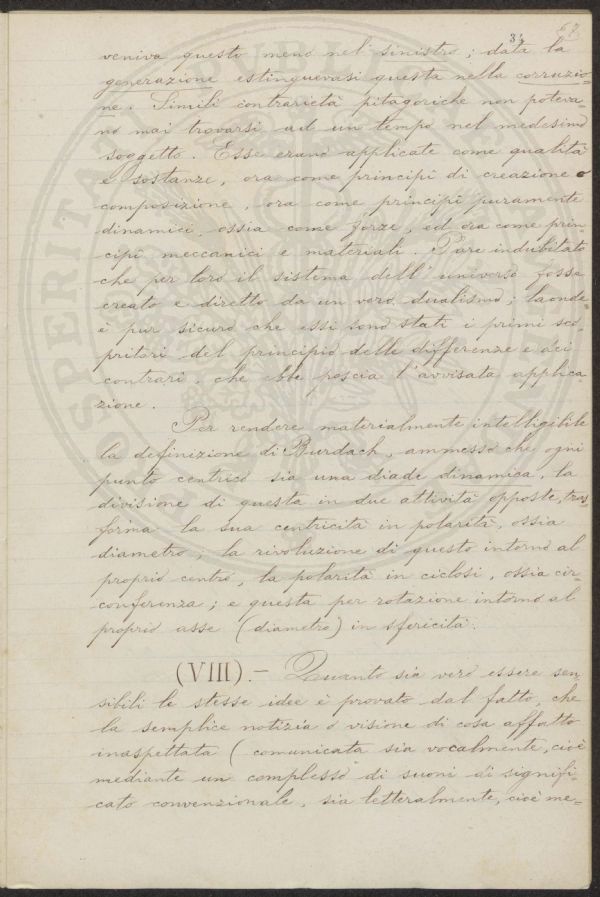 34 67
veniva questo meno nel sinistro; data la
generazione estinguevasi questa nella corruzio=
ne. Simili contrarietà pitagoriche non poteva=
no mai trovarsi ad un tempo nel medesimo
soggetto. Esse erano applicate come qualità
e sostanze, ora come principî di creazione o
composizione, ora come principî puramente
dinamici, ossia come forze, ed ora come prin=
cipî meccanici e materiali. Pare indubitato
che per loro il sistema dell'universo fosse
creato e diretto da un vero dualismo; laonde
è pur sicuro che essi sono stati i primi sco=
pritori del principio delle differenze e dei
contrari, che ebbe poscia l'avvisata applica=
zione.
Per rendere materialmente intelligibile
la definizione di Burdach, ammesso che ogni
punto centrico sia una diade dinamica, la
divisione di questa in due attività opposte, tras
forma la sua centricità in polarità, ossia
diametro; la rivoluzione di questo intorno al
proprio centro, la polarità in ciclosi, ossia cir=
conferenza; e questa per rotazione intorno al
proprio asse (diametro) in sfericità.
(VIII).— Quanto sia vero essere sen=
sibili le stesse idee è provato dal fatto, che
la semplice notizia o visione di cosa affatto
inaspettata (comunicata sia vocalmente, cioè
mediante un complesso di suoni di signifi=
cato convenzionale, sia letteralmente, cioè me=